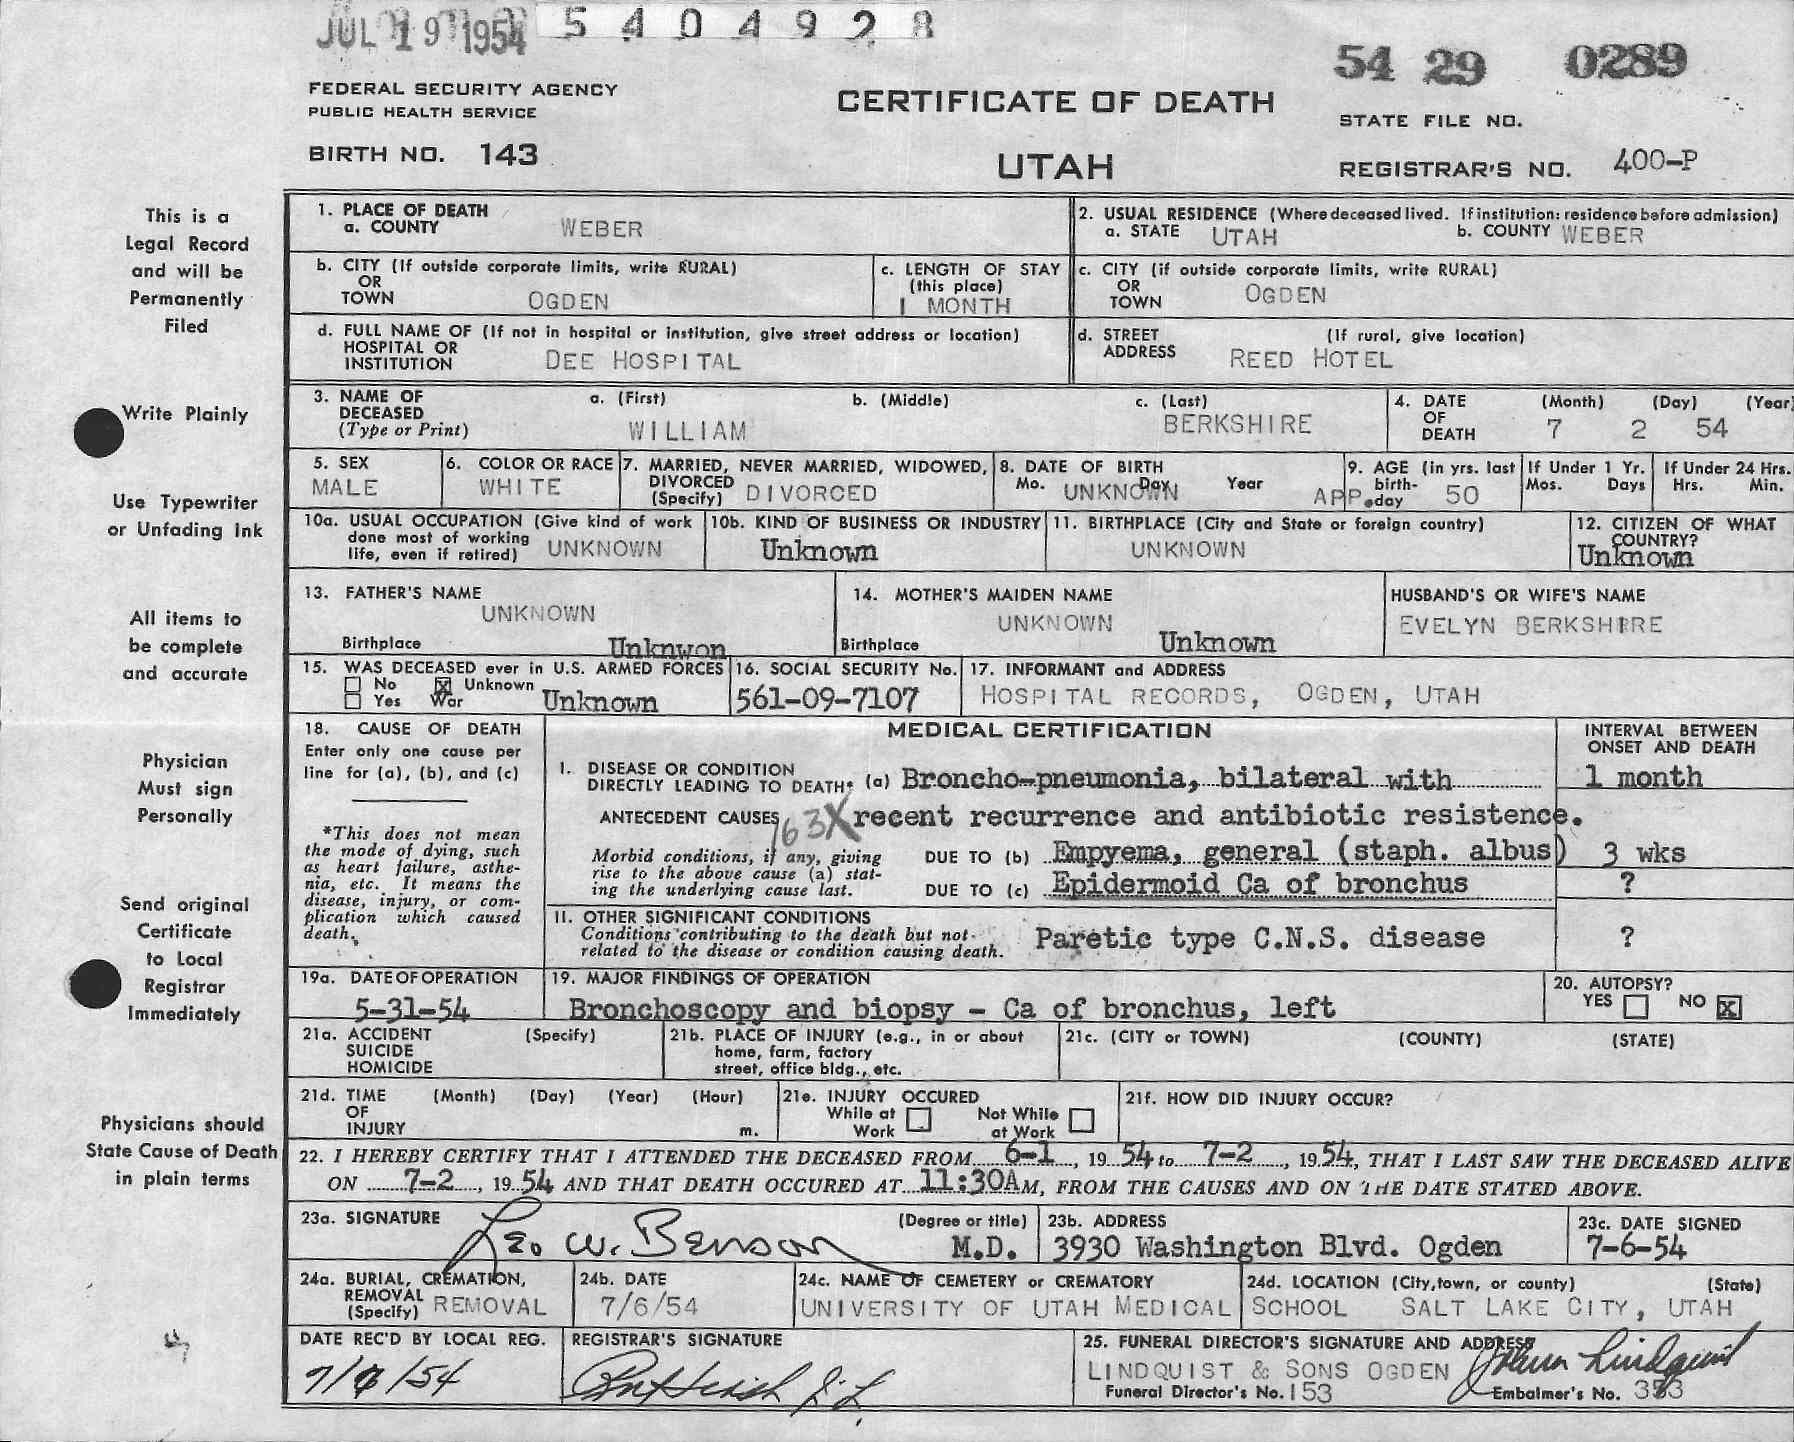 JUL 19 1954 5 4 0 4 9 2 8
54 29 0289
FEDERAL SECURITY AGENCY
PUBLIC HEALTH SERVICE
CERTIFICATE OF DEATH
STATE FILE NO.
BIRTH NO. 143
UTAH
REGISTRAR'S NO. 400-P
This is a
Legal Record
and will be
Permanently
Filed
Write Plainly
Use Typewriter
or Unfading Ink
All items to
be complete
and accurate
Physician
Must sign
Personally
Send original
Certificate
to Local
Registrar
Immediately
Physicians should
State Cause of Death
in plain terms
1. PLACE OF DEATH
a. COUNTY WEBER
2. USUAL RESIDENCE (Where deceased lived. If institution: residence before admission)
a. STATE UTAH b. COUNTY WEBER
b. CITY (If outside corporate limits, write RURAL)
OR
TOWN OGDEN
c. LENGTH OF STAY
(this place)
1 MONTH
c. CITY (if outside corporate limits, write RURAL)
OR
TOWN OGDEN
d. FULL NAME OF (If not in hospital or institution, give street address or location)
HOSPITAL OR
INSTITUTION DEE HOSPITAL
d. STREET (If rural, give location)
ADDRESS REED HOTEL
3. NAME OF
DECEASED
(Type or Print)
a. (First) b. (Middle) c. (Last)
WILLIAM BERKSHIRE
4. DATE (Month) (Day) (Year)
OF
DEATH 7 2 54
5. SEX
MALE
6. COLOR OR RACE
WHITE
7. MARRIED, NEVER MARRIED, WIDOWED,
DIVORCED
(Specify) DIVORCED
8. DATE OF BIRTH
Mo. Day Year
UNKNOWN
9. AGE (in yrs. last
birth-
day
APP. 50
If Under 1 Yr.
Mos. Days
If Under 24 Hrs.
Hrs. Min.
10a. USUAL OCCUPATION (Give kind of work
done most of working
life, even if retired) UNKNOWN
10b. KIND OF BUSINESS OR INDUSTRY
Unknown
11. BIRTHPLACE (City and State or foreign country)
UNKNOWN
12. CITIZEN OF WHAT
COUNTRY?
Unknown
13. FATHER'S NAME
UNKNOWN
Birthplace Unknwon
14. MOTHER'S MAIDEN NAME
UNKNOWN
Birthplace Unknown
HUSBAND'S OR WIFE'S NAME
EVELYN BERKSHIRE
15. WAS DECEASED ever in U.S. ARMED FORCES
No X Unknown
Yes War Unknown
16. SOCIAL SECURITY No.
561-09-7107
17. INFORMANT and ADDRESS
HOSPITAL RECORDS, OGDEN, UTAH
18. CAUSE OF DEATH
Enter only one cause per
line for (a), (b), and (c)
*This does not mean
the mode of dying, such
as heart failure, asthe-
nia, etc. It means the
disease, injury, or com-
plication which caused
death.
MEDICAL CERTIFICATION
INTERVAL BETWEEN
ONSET AND DEATH
I. DISEASE OR CONDITION
DIRECTLY LEADING TO DEATH* (a) Broncho-pneumonia, bilateral with 1 month
ANTECEDENT CAUSES 163X recent recurrence and antibiotic resistence.
Morbid conditions, if any, giving
rise to the above cause (a) stat-
ing the underlying cause last.
DUE TO (b) Empyema, general (staph. albus) 3 wks
DUE TO (c) Epidermoid Ca of bronchus ?
II. OTHER SIGNIFICANT CONDITIONS
Conditions contributing to the death but not
related to the disease or condition causing death.
Paretic type C.N.S. disease ?
19a. DATE OF OPERATION
5-31-54
19. MAJOR FINDINGS OF OPERATION
Bronchoscopy and biopsy - Ca of bronchus, left
20. AUTOPSY?
YES NO X
21a. ACCIDENT (Specify)
SUICIDE
HOMICIDE
21b. PLACE OF INJURY (e.g., in or about
home, farm, factory
street, office bldg., etc.
21c. (CITY or TOWN) (COUNTY) (STATE)
21d. TIME (Month) (Day) (Year) (Hour)
OF
INJURY m.
21e. INJURY OCCURED
While at Not While
Work at Work
21f. HOW DID INJURY OCCUR?
22. I HEREBY CERTIFY THAT I ATTENDED THE DECEASED FROM 6-1, 19 54 to 7-2, 19 54, THAT I LAST SAW THE DECEASED ALIVE
ON 7-2, 19 54 AND THAT DEATH OCCURED AT 11:30A M, FROM THE CAUSES AND ON THE DATE STATED ABOVE.
23a. SIGNATURE (Degree or title)
Leo W. Benson M.D.
23b. ADDRESS
3930 Washington Blvd. Ogden
23c. DATE SIGNED
7-6-54
24a. BURIAL, CREMATION,
REMOVAL
(Specify) REMOVAL
24b. DATE
7/6/54
24c. NAME OF CEMETERY or CREMATORY
UNIVERSITY OF UTAH MEDICAL
24d. LOCATION (City, town, or county) (State)
SCHOOL SALT LAKE CITY, UTAH
DATE REC'D BY LOCAL REG.
REGISTRAR'S SIGNATURE
25. FUNERAL DIRECTOR'S SIGNATURE AND ADDRESS
LINDQUIST & SONS OGDEN Lindquist
Funeral Director's No. 153 Embalmer's No. 353